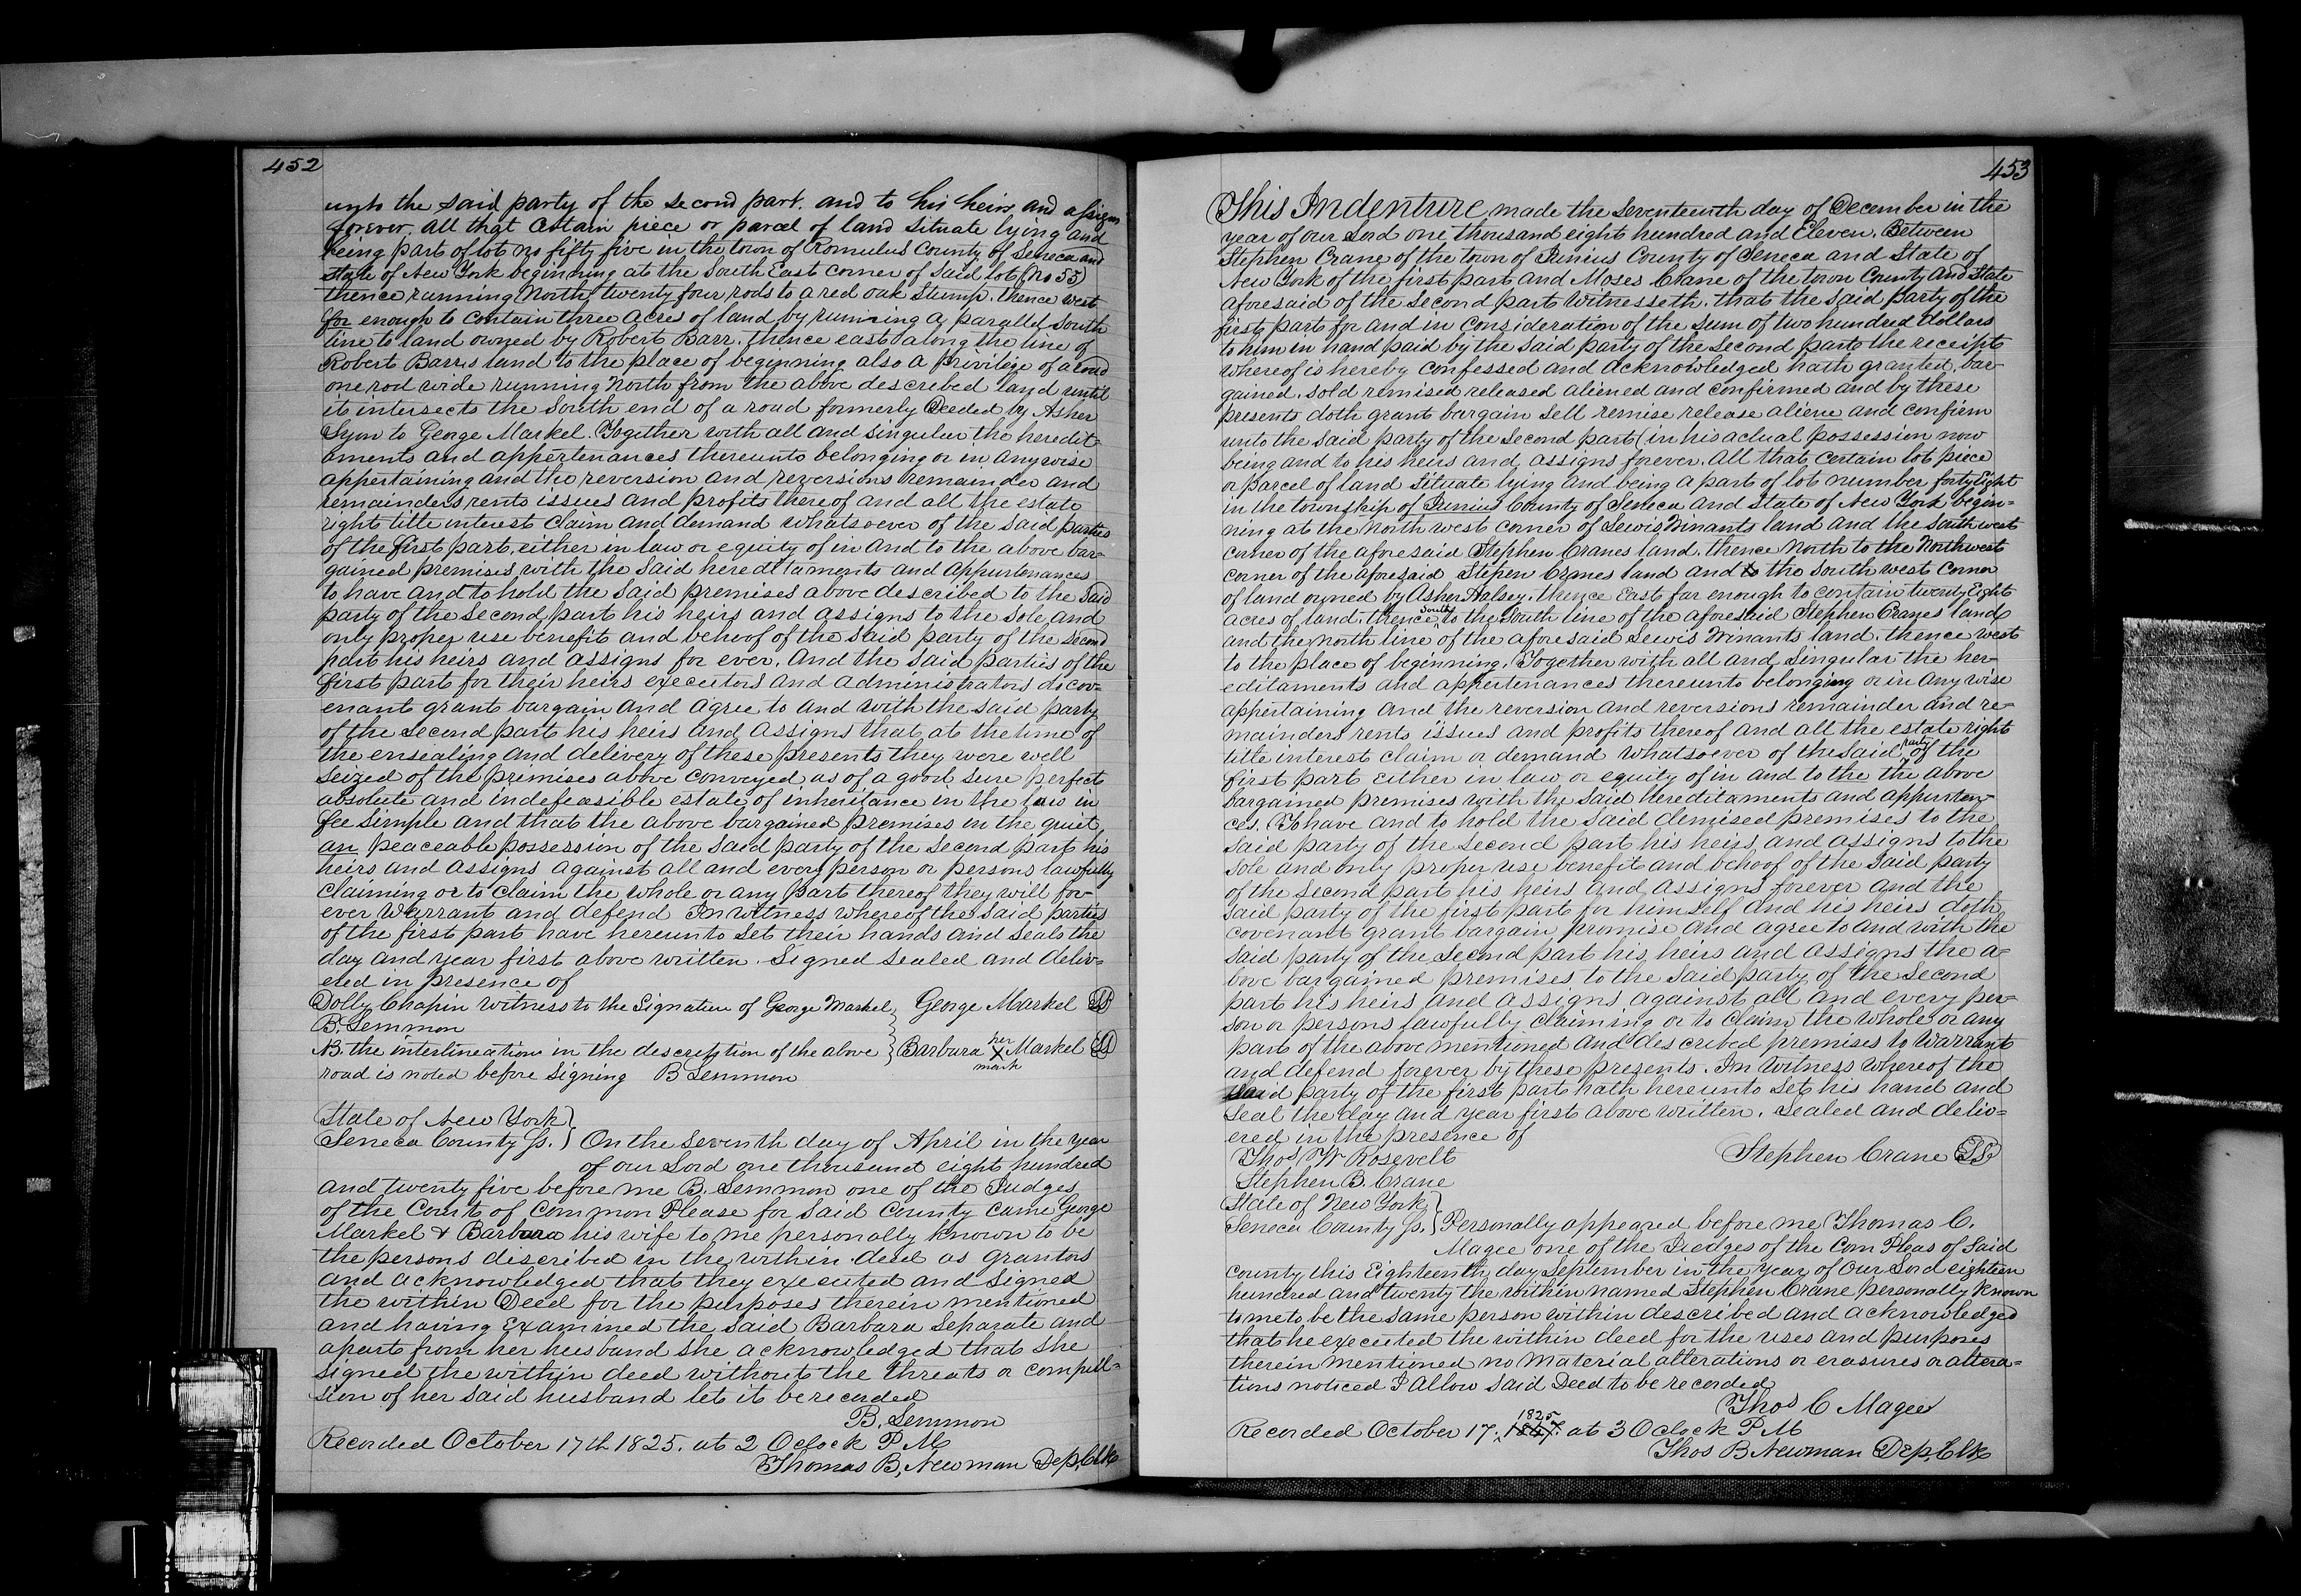 452
unto the said party of the second part. and to his heirs and assigns
forever. All that certain piece or parcel of land situate lying and
being part of lot no fifty five in the town of Romulus County of Seneca and
State of New York beginning at the South East corner of said lot (no 55)
thence running North twenty four rods to a red oak Stump. thence west
for enough to contain three acres of land by running a paralled South
line to land owned by Robert Barr. thence east along the line of
Robert Barrs land to the place of beginning also a privilige of a road
one rod wide running North from the above described land until
it intersects the South end of a road formerly Deeded by Asher
Lyon to George Markel. Together with all and singular the heredit-
aments and appertenances thereunto belonging or in anywise
appertaining and the reversion and reversions remainder and
remainders rents issues and profits thereof and all the estate
right title interest claim and demand whatsoever of the said parties
of the first part, either in law or equity of in and to the above bar-
gained premises with the said hereditaments and appurtenances
to have and to hold the said premises above described to the said
party of the second part his heirs and assigns to the sole and
only proper use benefit and behoof of the said party of the second
part his heirs and assigns for ever. And the said parties of the
first part for their heirs executors and administrators do cov-
enant grant bargain and agree to and with the said party
of the second part his heirs and assigns that at the time of
the ensealing and delivery of these presents they were well
seized of the premises above conveyed as of a good sure perfect
absolute and indefeasible estate of inheritance in the law in
fee simple and that the above bargained premises in the quiet
an peaceable possession of the said party of the second part his
heirs and assigns against all and every person or persons lawfully
claiming or to claim the whole or any part thereof they will for-
ever Warrant and defend In witness whereof the said parties
of the first part have hereunto set their hands and seals the
day and year first above written. Signed sealed and deliv-
ered in presence of
Dolly Chapin witness to the signature of George Markel } George Markel LS
B. Lemmon
NB. the interlineation in the description of the above } Barbara her X mark Markel LS
road is noted before signing B Lemmon
State of New York }
Seneca County ss. } On the seventh day of April in the year
of our Lord one thousand eight hundred
and twenty five before me B. Lemmon one of the Judges
of the Court of Common Please for said County came George
Markel & Barbara his wife to me personally known to be
the persons discribed in the within deed as grantors
and acknowledged that they executed and signed
the within Deed for the purposes therein mentioned
and having Examined the said Barbara separate and
apart from her husband she acknowledged that she
signed the within deed without the threats or compul-
sion of her said husband let it be recorded
B. Lemmon
Recorded October 17th 1825. at 2 Oclock P.M
Thomas B. Newman Dep. Clk
453
This Indenture made the seventeenth day of December in the
year of our Lord one thousand eight hundred and Eleven. Between
Stephen Crane of the town of Junius County of Seneca and State of
New York of the first part and Moses Crane of the town County and State
aforesaid of the second part Witnesseth. that the said party of the
first part for and in consideration of the sum of two hundred dollars
to him in hand paid by the said party of the second part the receipt
whereof is hereby confessed and acknowledged hath granted, bar-
gained. sold remised released aliened and confirmed and by these
presents doth grant bargain sell remise release aliene and confirm
unto the said party of the second part (in his actual possession now
being and to his heirs and assigns forever. All that certain lot piece
or parcel of land situate lying and being a part of lot number forty Eight
in the township of Junius County of Seneca and State of New York begin-
ning at the North west corner of Lewis Winants land and the South west
corner of the aforesaid Stephen Cranes land. thence North to the Northwest
corner of the aforesaid Stepen Cranes land and to the South west corner
of land owned by Asher Halsey. thence East far enough to contain twenty Eight
acres of land. thence south to the South line of the aforesaid Stephen Cranes land
and the North line of the aforesaid Lewis Winants land. thence west
to the place of beginning. Together with all and singular the her-
editaments and appertenances thereunto belonging or in any wise
appertaining and the reversion and reversions remainder and re-
mainders rents issues and profits thereof and all the estate right
title interest claim or demand whatsoever of the said party of the
first part either in law or equity of in and to the the above
bargained premises with the said hereditaments and appurten-
ces. To have and to hold the said demised premises to the
said party of the second part his heirs and assigns to the
sole and only proper use benefit and behoof of the said party
of the second part his heirs and assigns forever and the
said party of the first part for himself and his heirs doth
covenant grant bargain promise and agree to and with the
said party of the second part his heirs and assigns the a-
bove bargained premises to the said party of the second
part his heirs and assigns against all and every per-
son or persons lawfully claiming or to claim the whole or any
part of the above mentioned and described premises to warrant
and defend forever by these presents. In Witness whereof the
said party of the first part hath hereunto set his hand and
seal the day and year first above written. Sealed and deliv-
ered in the presence of
Thos W Rosevelt Stephen Crane LS
Stephen B. Crane
State of New York }
Seneca County ss. } Personally appeared before me Thomas C.
Magee one of the Judges of the Com Pleas of said
county this Eighteenth day September in the year of Our Lord eighteen
hundred and twenty the within named Stephen Crane personally known
to me to be the same person within described and acknowledged
that he executed the within deed for the uses and purposes
therein mentioned no material alterations or erasures or altera-
tions noticed I allow said Deed to be recorded
Thos C Magee
Recorded October 17. 1825 at 3 Oclock P M
Thos B Newman Dep. Clk